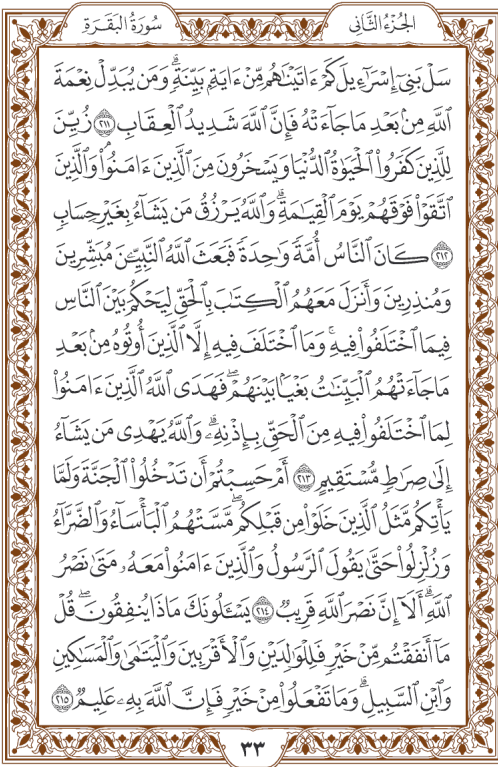 الجُزْءُ الثَّانِي
سُورَةُ البَقَرَةِ
سَلْ بَنِىٓ إِسْرَٰٓءِيلَ كَمْ ءَاتَيْنَٰهُم مِّنْ ءَايَةِۭ بَيِّنَةٍۗ وَمَن يُبَدِّلْ نِعْمَةَ
ٱللَّهِ مِنۢ بَعْدِ مَا جَآءَتْهُ فَإِنَّ ٱللَّهَ شَدِيدُ ٱلْعِقَابِ ٢١١ زُيِّنَ
لِلَّذِينَ كَفَرُوا۟ ٱلْحَيَوٰةُ ٱلدُّنْيَا وَيَسْخَرُونَ مِنَ ٱلَّذِينَ ءَامَنُوا۟ۘ وَٱلَّذِينَ
ٱتَّقَوْا۟ فَوْقَهُمْ يَوْمَ ٱلْقِيَٰمَةِۗ وَٱللَّهُ يَرْزُقُ مَن يَشَآءُ بِغَيْرِ حِسَابٍ
٢١٢ كَانَ ٱلنَّاسُ أُمَّةً وَٰحِدَةً فَبَعَثَ ٱللَّهُ ٱلنَّبِيِّۦنَ مُبَشِّرِينَ
وَمُنذِرِينَ وَأَنزَلَ مَعَهُمُ ٱلْكِتَٰبَ بِٱلْحَقِّ لِيَحْكُمَ بَيْنَ ٱلنَّاسِ
فِيمَا ٱخْتَلَفُوا۟ فِيهِۚ وَمَا ٱخْتَلَفَ فِيهِ إِلَّا ٱلَّذِينَ أُوتُوهُ مِنۢ بَعْدِ
مَا جَآءَتْهُمُ ٱلْبَيِّنَٰتُ بَغْيَۢا بَيْنَهُمْۖ فَهَدَى ٱللَّهُ ٱلَّذِينَ ءَامَنُوا۟
لِمَا ٱخْتَلَفُوا۟ فِيهِ مِنَ ٱلْحَقِّ بِإِذْنِهِۦۗ وَٱللَّهُ يَهْدِى مَن يَشَآءُ
إِلَىٰ صِرَٰطٍ مُّسْتَقِيمٍ ٢١٣ أَمْ حَسِبْتُمْ أَن تَدْخُلُوا۟ ٱلْجَنَّةَ وَلَمَّا
يَأْتِكُم مَّثَلُ ٱلَّذِينَ خَلَوْا۟ مِن قَبْلِكُمۖ مَّسَّتْهُمُ ٱلْبَأْسَآءُ وَٱلضَّرَّآءُ
وَزُلْزِلُوا۟ حَتَّىٰ يَقُولَ ٱلرَّسُولُ وَٱلَّذِينَ ءَامَنُوا۟ مَعَهُۥ مَتَىٰ نَصْرُ
ٱللَّهِۗ أَلَآ إِنَّ نَصْرَ ٱللَّهِ قَرِيبٌ ٢١٤ يَسْـَٔلُونَكَ مَاذَا يُنفِقُونَۖ قُلْ
مَآ أَنفَقْتُم مِّنْ خَيْرٍ فَلِلْوَٰلِدَيْنِ وَٱلْأَقْرَبِينَ وَٱلْيَتَٰمَىٰ وَٱلْمَسَٰكِينِ
وَٱبْنِ ٱلسَّبِيلِۗ وَمَا تَفْعَلُوا۟ مِنْ خَيْرٍ فَإِنَّ ٱللَّهَ بِهِۦ عَلِيمٌ ٢١٥
٣٣